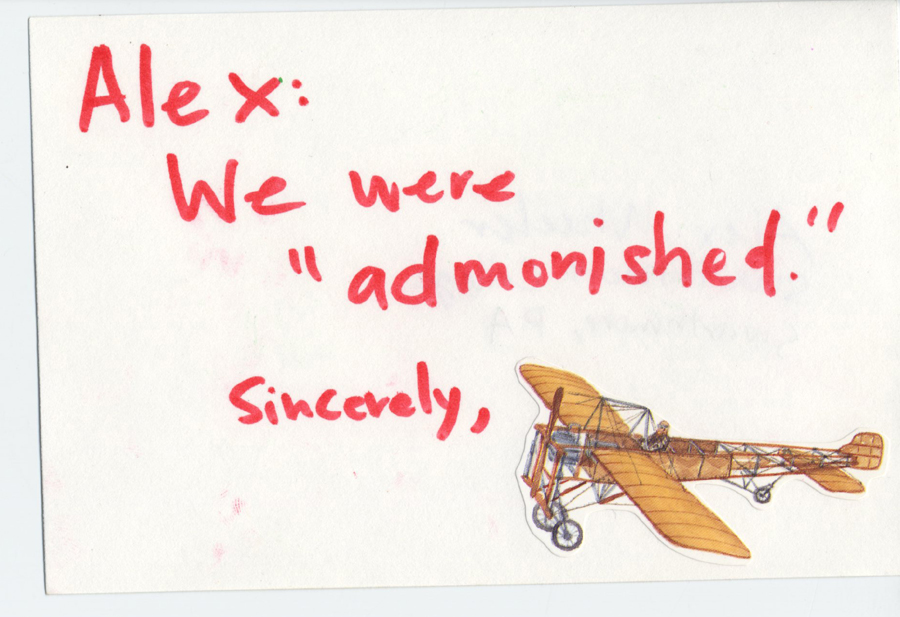 Alex:
We were
"admonished."
Sincerely,